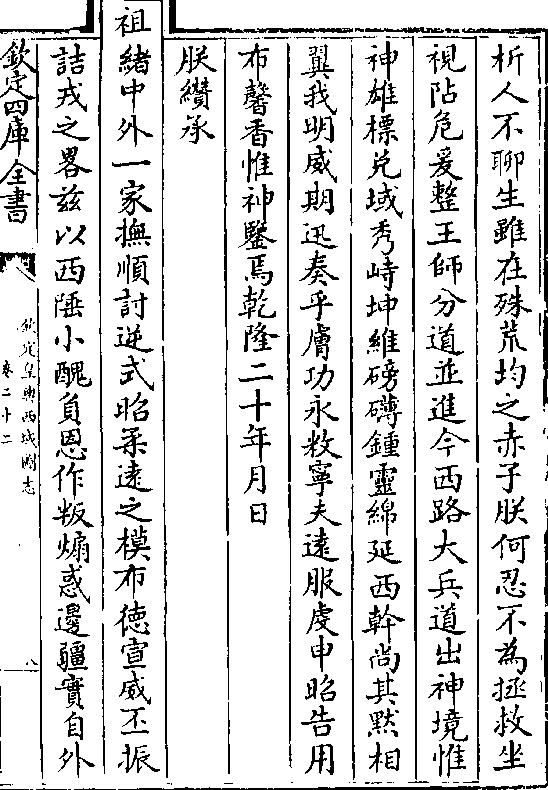 析人不聊生雖在殊荒均之赤子朕何忍不為拯救坐
視阽危爰整王師分道並進今西路大兵道出神境惟
神雄標兌域秀峙坤維磅礴鍾靈綿延西幹尚其默相
翼我明威期迅奏乎膚功永敉寧夫遠服虔申昭告用
布馨香惟神鑒焉乾隆二十年月日
朕纘承
祖緒中外一家撫順討逆式昭柔遠之模布德宣威丕振
詰戎之畧兹以西陲小醜負恩作叛煽惑邊疆實自外
欽定四庫全書
欽定皇輿西域圖志
卷二十二
八